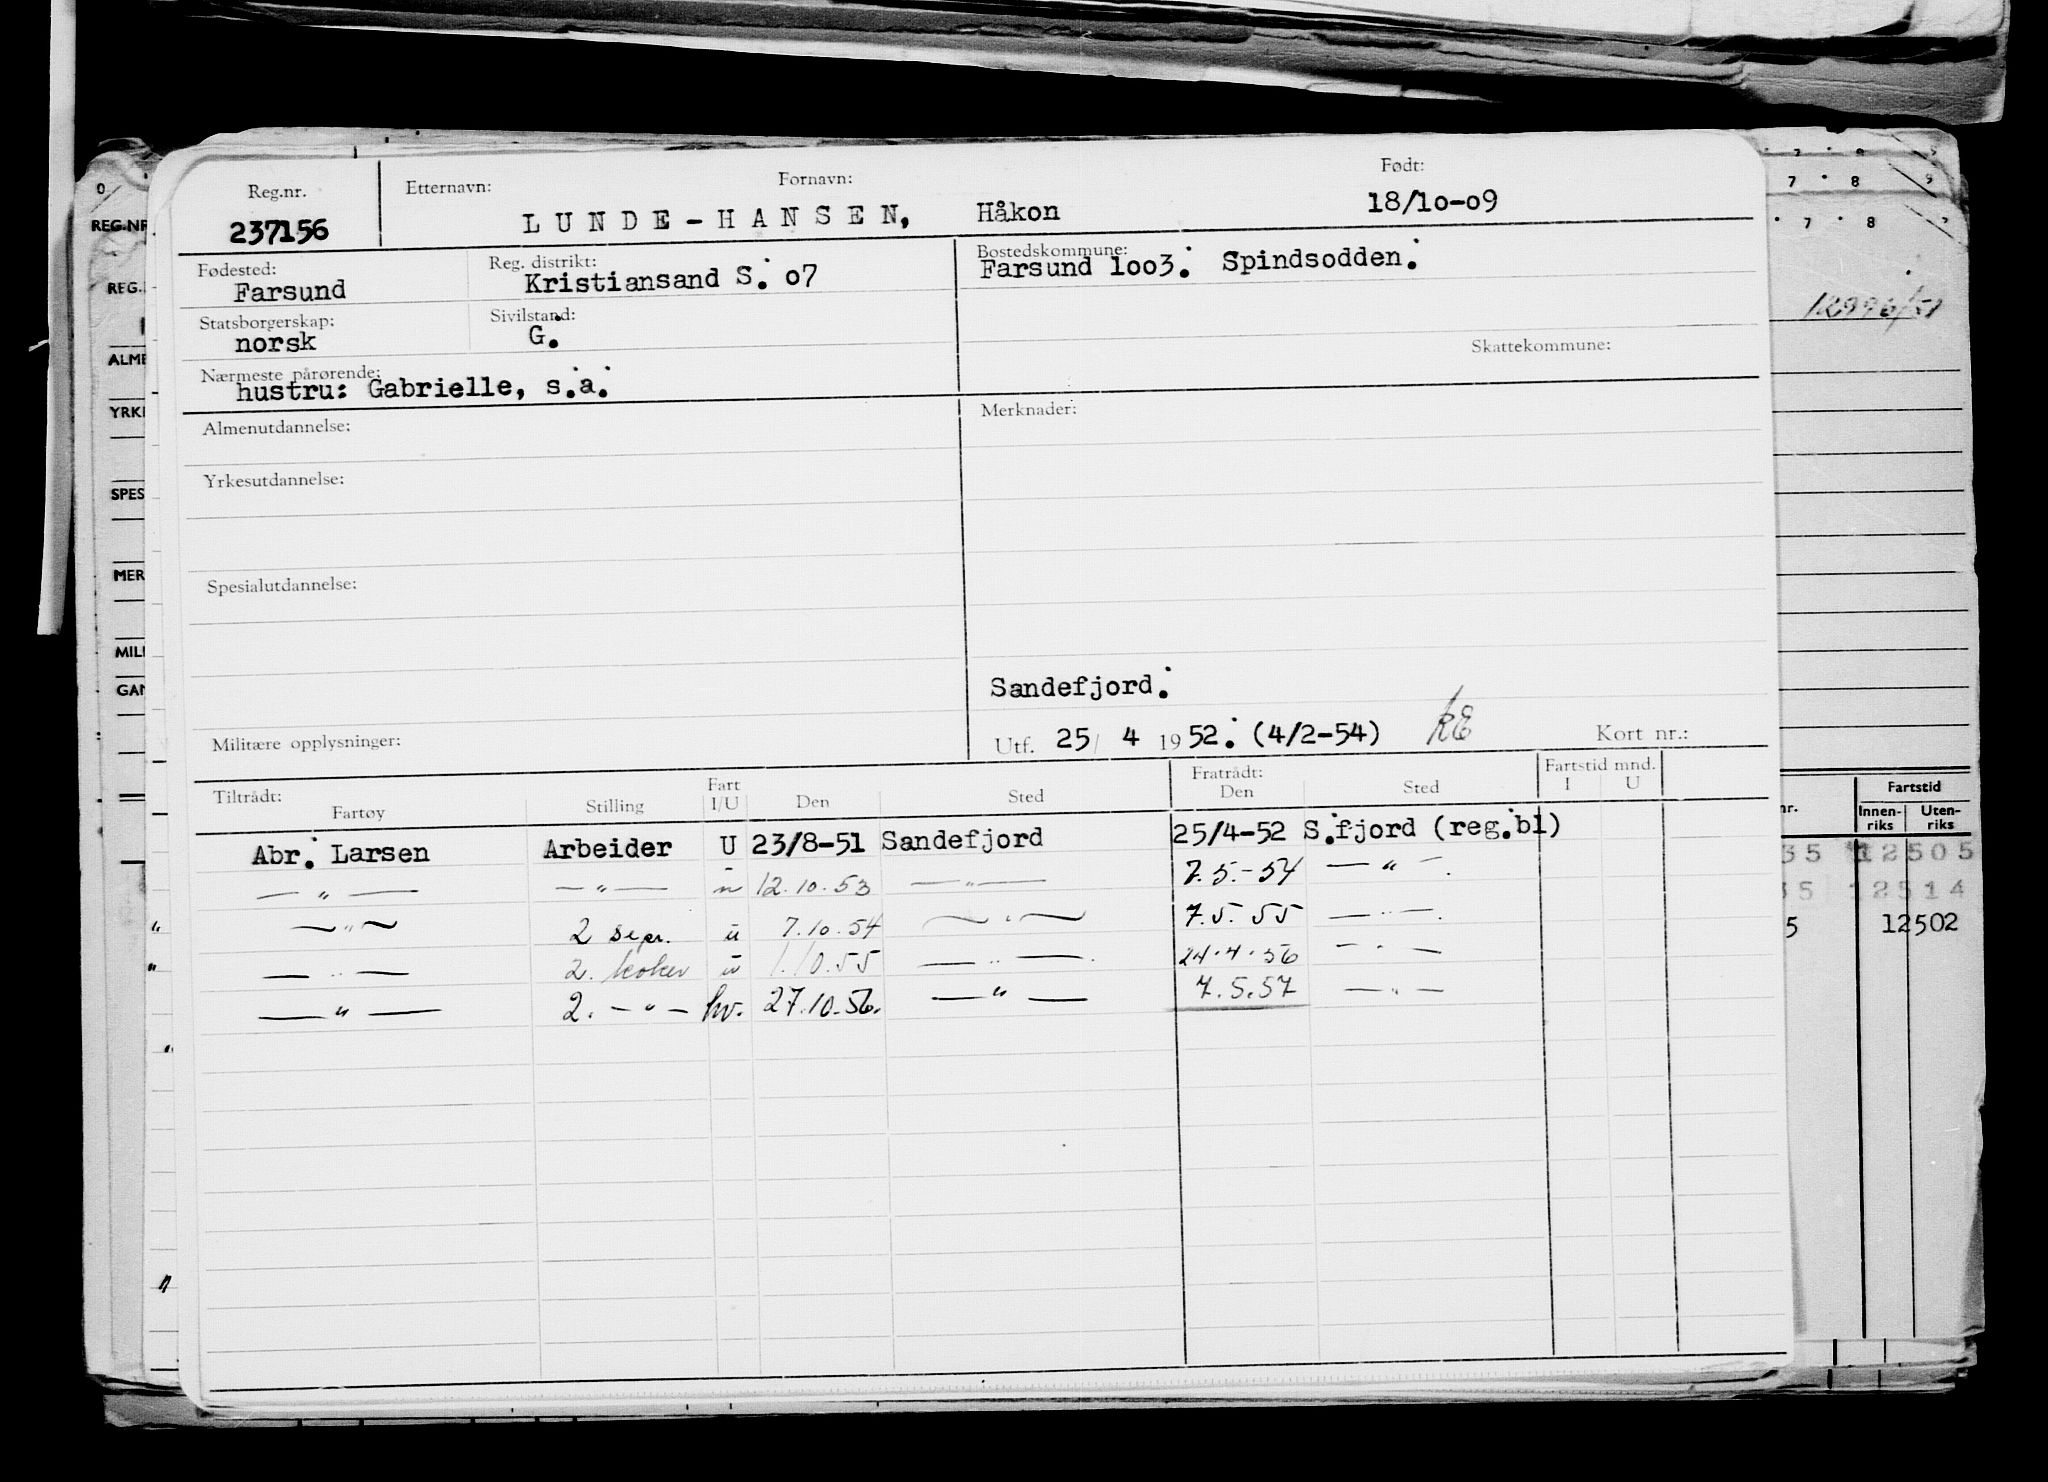 Reg.nr. Etternavn: Fornavn: Født:
237156 LUNDE-HANSEN, Håkon 18/1o-o9
Fødested: Reg. distrikt: Bostedskommune:
Farsund Kristiansand S. o7 Farsund 1oo3. Spindsodden.
Statsborgerskap: Sivilstand:
norsk G.
Skattekommune:
Nærmeste pårørende:
hustru: Gabrielle, s.a.
Almenutdannelse: Merknader:
Yrkesutdannelse:
Spesialutdannelse:
Sandefjord.
Militære opplysninger: Utf. 25/ 4 1952. (4/2-54) Kort nr.:
Tiltrådt: Fart Fratrådt: Fartstid mnd.
Fartøy Stilling I/U Den Sted Den Sted I U
Abr. Larsen Arbeider U 23/8-51 Sandefjord 25/4-52 S.fjord (reg.bl)
— " — — " — u 12.10.53 — " — 7.5.-54 — " —
— " — 2 sepr. u 7.10.54 — " — 7.5.55 — " —
— " — 2. koker u 1.10.55 — " — 24.4.56 — " —
— " — 2. — " — hv. 27.10.56. — " — 7.5.57 — " —
REG.NR
REG.
ALME
YRK
SPES
MER
MIL
GAN
0
7 8 9
7 8
12996/51
nr. Fartstid
Innen-riks Uten-riks
35 12505
35 12514
5 12502